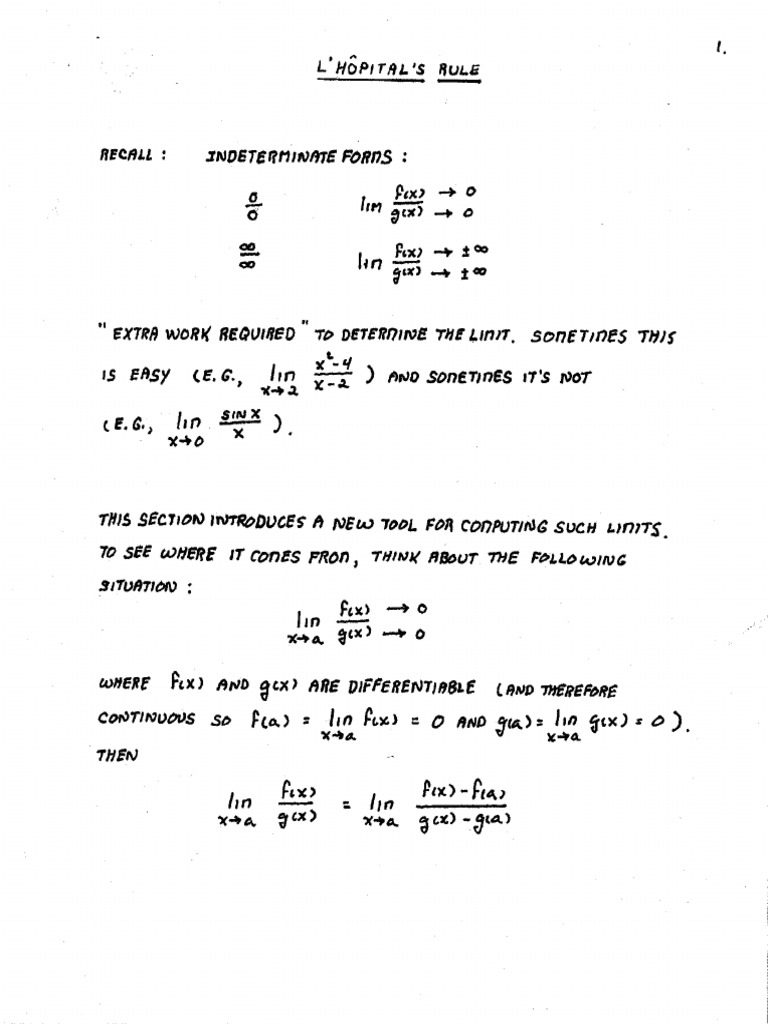 1.
L'HÔPITAL'S RULE
RECALL : INDETERMINATE FORMS :
0/0 lim f(x)/g(x) → 0 → 0
∞/∞ lim f(x)/g(x) → ±∞ → ±∞
"EXTRA WORK REQUIRED" TO DETERMINE THE LIMIT. SOMETIMES THIS
IS EASY (E.G., lim x→2 x²-4/x-2 ) AND SOMETIMES IT'S NOT
(E.G., lim x→0 SIN X/X ).
THIS SECTION INTRODUCES A NEW TOOL FOR COMPUTING SUCH LIMITS.
TO SEE WHERE IT COMES FROM, THINK ABOUT THE FOLLOWING
SITUATION :
lim x→a f(x)/g(x) → 0 → 0
WHERE f(x) AND g(x) ARE DIFFERENTIABLE (AND THEREFORE
CONTINUOUS SO f(a) = lim x→a f(x) = 0 AND g(a) = lim x→a g(x) = 0).
THEN
lim x→a f(x)/g(x) = lim x→a f(x)-f(a)/g(x)-g(a)